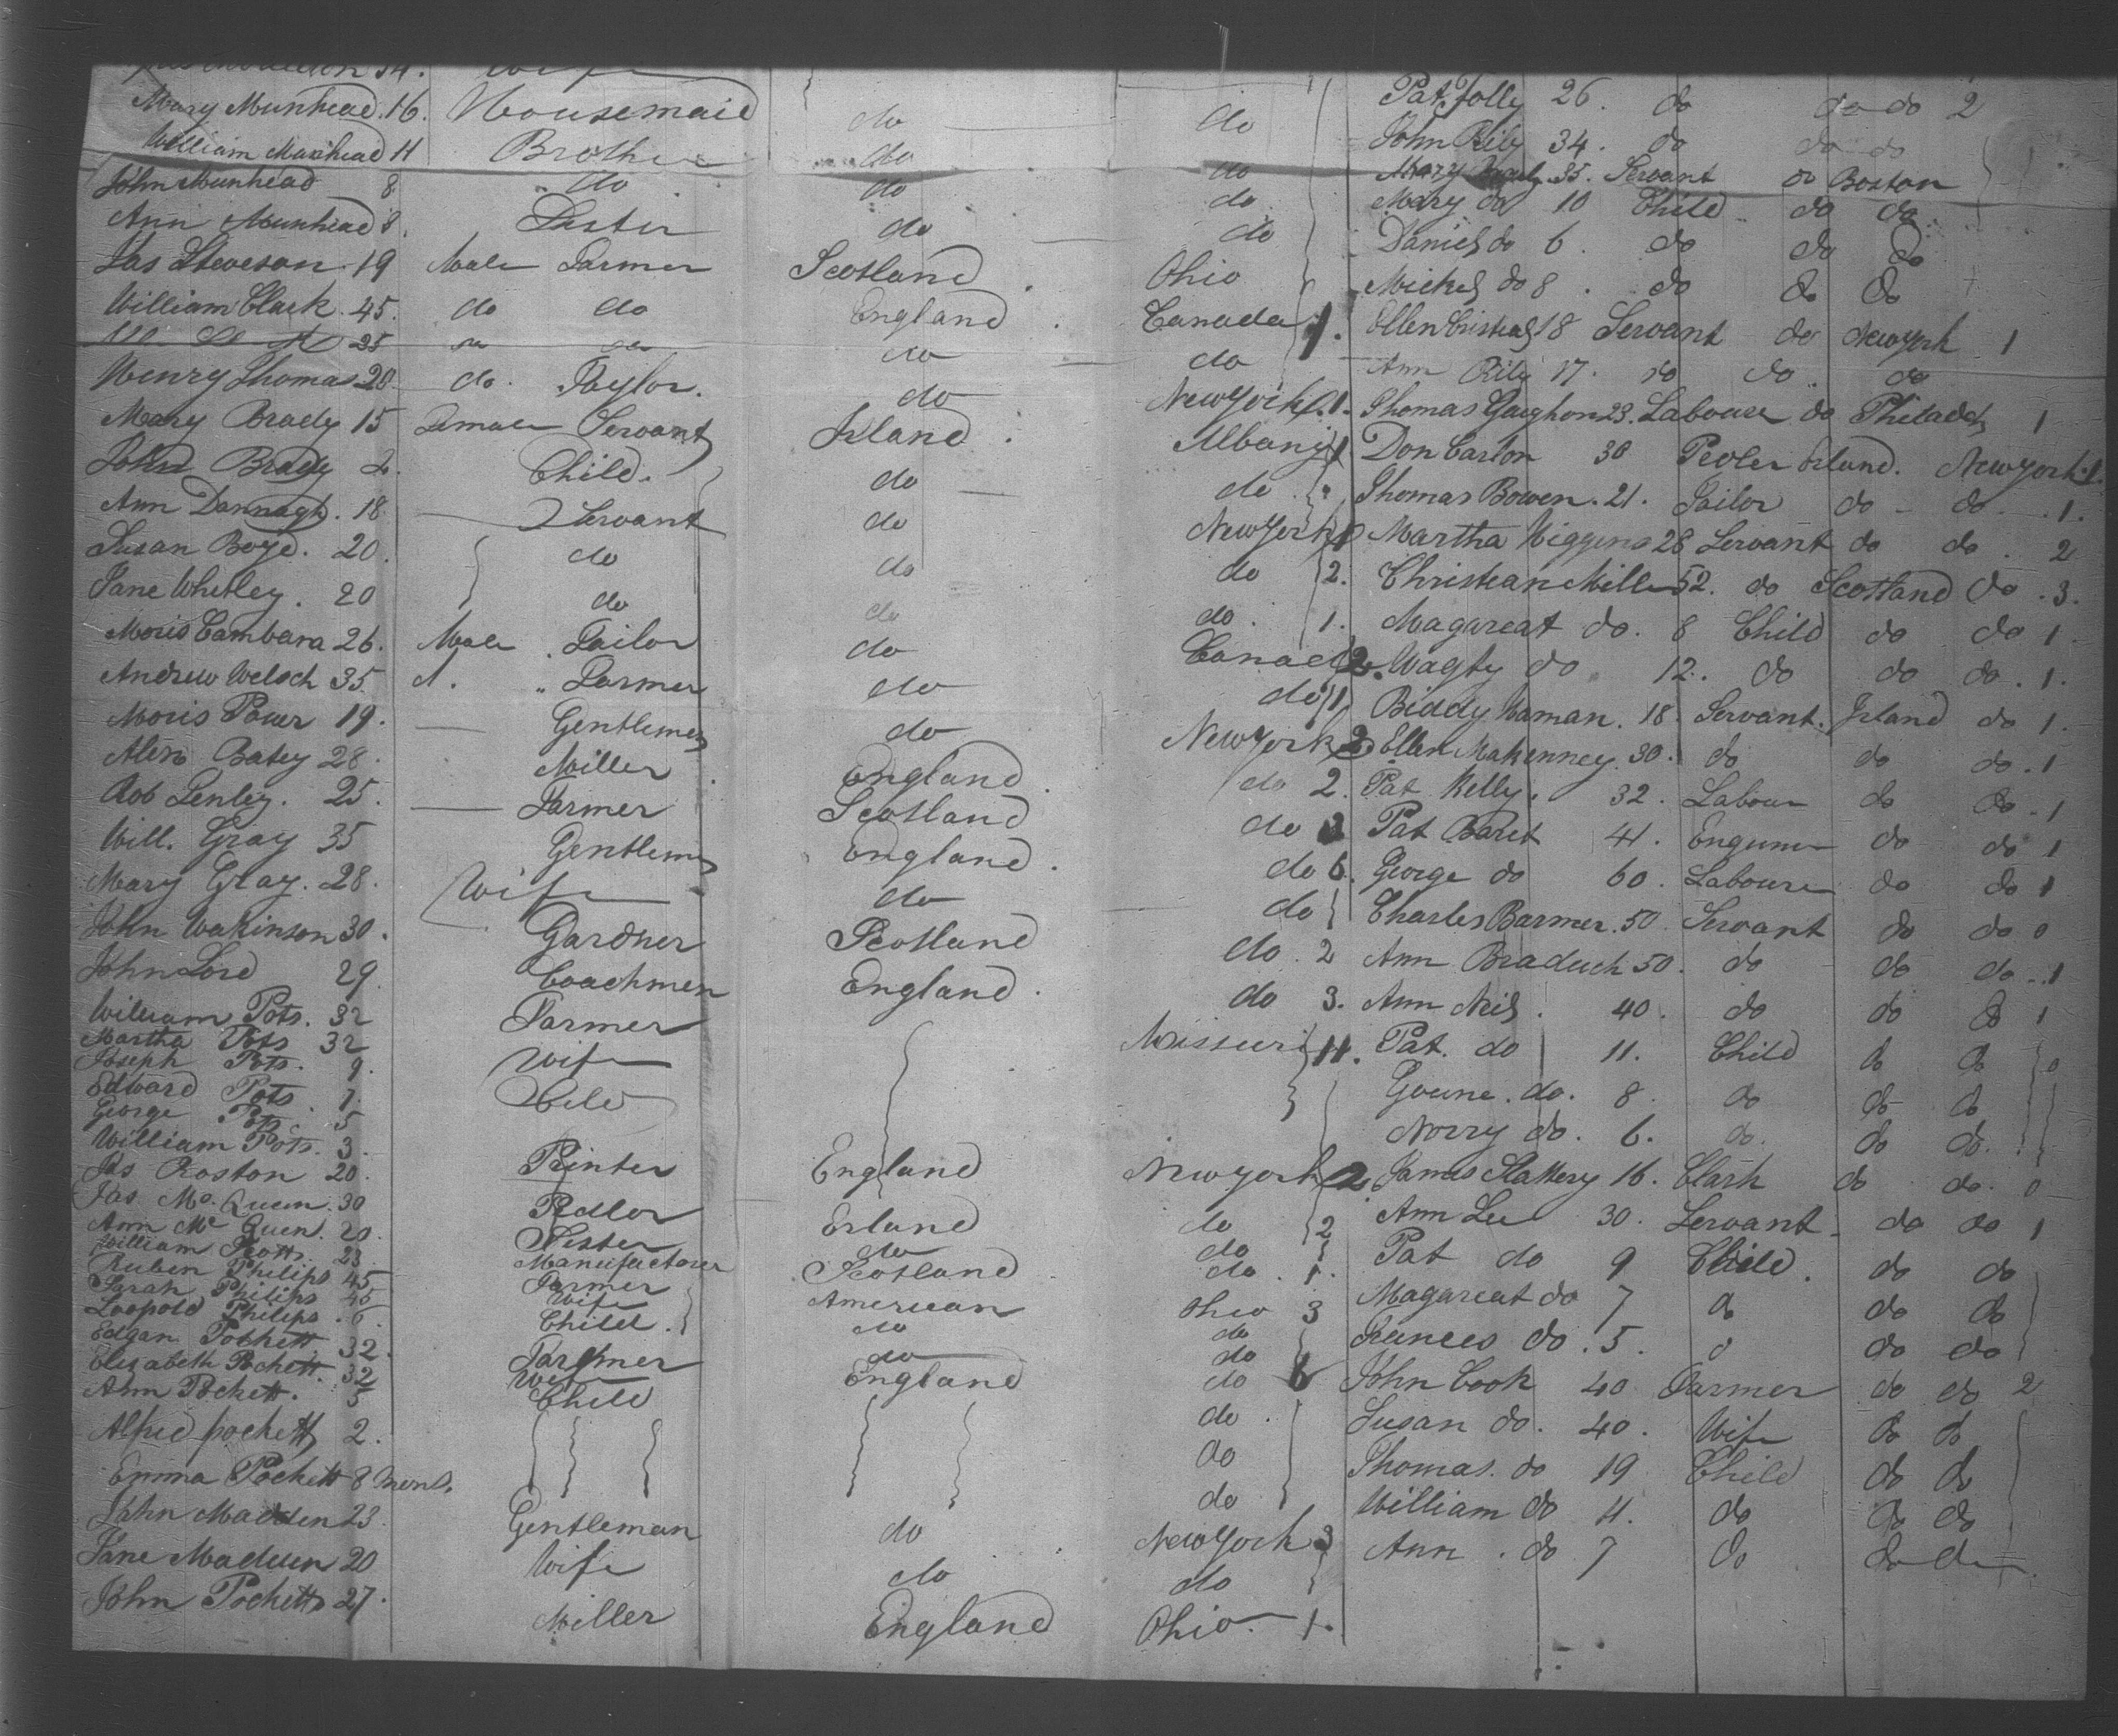 Mary Munhead. 16. Housemaid do do
William Munhead 11 Brother do do
John Munhead 8 do do do
Ann Munhead 8. Sister do do
Jas Steveson. 19 Male Farmer Scotland. Ohio
William Clark. 45. do do England. Canada 1.
25 do do do do
Henry Thomas 20. do. Taylor. do New York. 1.
Mary Brady 15 Female Servant Irland. Albany 1
John Brady 2. Child. do do
Ann Dannagh. 18 Servant do New York 1
Susan Boyd. 20. do do do 2.
Jane Whitley. 20 do do do. 1.
Moris Cambara 26. Male. Tailor do Canada 2.
Andrew Welsch 35. d. " Farmer do do 1
Moris Power 19. Gentlemen do New York 2
Alex Batey 28. Miller England. do 2.
Rob Lenley. 25. Farmer Scotland do 3
Will. Gray 35 Gentlemen England. do 6.
Mary Gray. 28. Wife do do
John Wakinson 30. Gardner Scotland do. 2
John Lord 29. Coachmen England. do 3.
William Pots. 32 Farmer Missuri 11.
Martha Pots 32 Wife
Joseph Pots. 9. Child
Edward Pots. 7.
George Pots 5
William Pots. 3.
Jas Roston 20. Printer England New York 2
Jas Mc. Quern. 30 Pedlor Erland do 2
Ann Mc Quen. 20. Sister do do
William Scott. 23 Manufacturer Scotland do. 1.
Ruben Philips 45 Farmer American Ohio 3
Sarah Philips 45 Wife do do
Leopold Philips. 6. Child. do do
Edgar Pockett 32. Farmer England do 6
Elizabeth Pockett. 32 Wife
Ann Pockett. 5 Child do.
Alfred pockett 2. do
Emma Pockett 8 Mons. do.
John Madden 23. Gentleman do New York 3
Jane Madden 20 Wife do do
John Pockett 27. Miller England Ohio. 1.
Pat. Jolly 26. do do do 2
John Rily 34. do do do
Mary 35. Servant do Boston
Mary do 10 Child do do
Daniel do 6. do do do
Michel do 8. do do do
Ellen 18 Servant do New York 1
Ann Rily 17. do do. do
Thomas Gaughon 23. Labourer do Philadel 1
Don Carlon 30 Pedler Erland. New York. 1.
Thomas Bowen. 21. Sailor do do 1.
Martha Higgins 28 Servant do do. 2
Christian Miller 52. do Scotland do. 3.
Magareat do. 8 Child do do 1
do 12. do do do. 1.
Biddy Haman. 18. Servant. Irland do 1.
Ellen Makenney. 30. do do do. 1
Pat Kelly. 32. Labour do do. 1
Pat Baret 41. do do 1
George do 60. Labourer do do 1
Charles Barmer. 50. Servant do do 0
Ann Braduch 50. do do do. 1
Ann Neil. 40. do do do 1
Pat. do 11. Child do do 0
do. 8. do do do
Norry do. 6. do. do do.
James Slattery 16. Clark do do. 0
Ann Lee 30. Servant do do 1
Pat do 9 Child. do do
Magareat do 7 do do do
Frances do. 5. d do do
John Cook 40 Farmer do do 2
Susan do. 40. Wife do do
Thomas. do 19 Child do do
William do 11. do do do
Ann. do 7 do do do